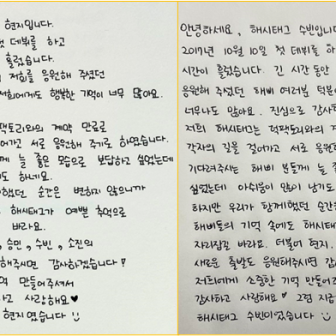 현지입니다.
첫 데뷔를 하고
흘렀습니다.
저희를 응원해 주셨던
저희에게도 행복한 기억이 너무 많아요.
럭팩토리와의 계약 만료로
걸어가고 서로 응원해 주기로 하였습니다.
께 늘 좋은 모습으로 보답하고 싶었는데
도 하네요.
했던 순간은 변하지 않으니까
해시태그가 예쁜 추억으로
바라요.
, 승민, 수빈, 소진의
해주시면 감사하겠습니다!
억 만들어주셔서
하고 사랑해요♥
현지였습니다
안녕하세요, 해시태그 수빈입니다
2019년 10월 10일 첫 데뷔를 하
시간이 흘렀습니다. 긴 시간 동안
응원해 주셨던 해삐 여러분 덕분에
너무나도 많아요. 진심으로 감사
저희 해시태그는 럭팩토리와의
각자의 길을 걸어가고 서로 응원
기다려주시는 해삐 분들께 늘
싶었는데 아쉬움이 많이 남기도
하지만 우리가 함께했던 순간
해삐들의 기억 속에도 해시태
자리잡길 바라요. 더불어 현지,
새로운 출발도 응원해주시면 감
저희에게 소중한 기억 만들어
감사하고 사랑해요♥ 그럼 지금
해시태그 수빈이었습니다